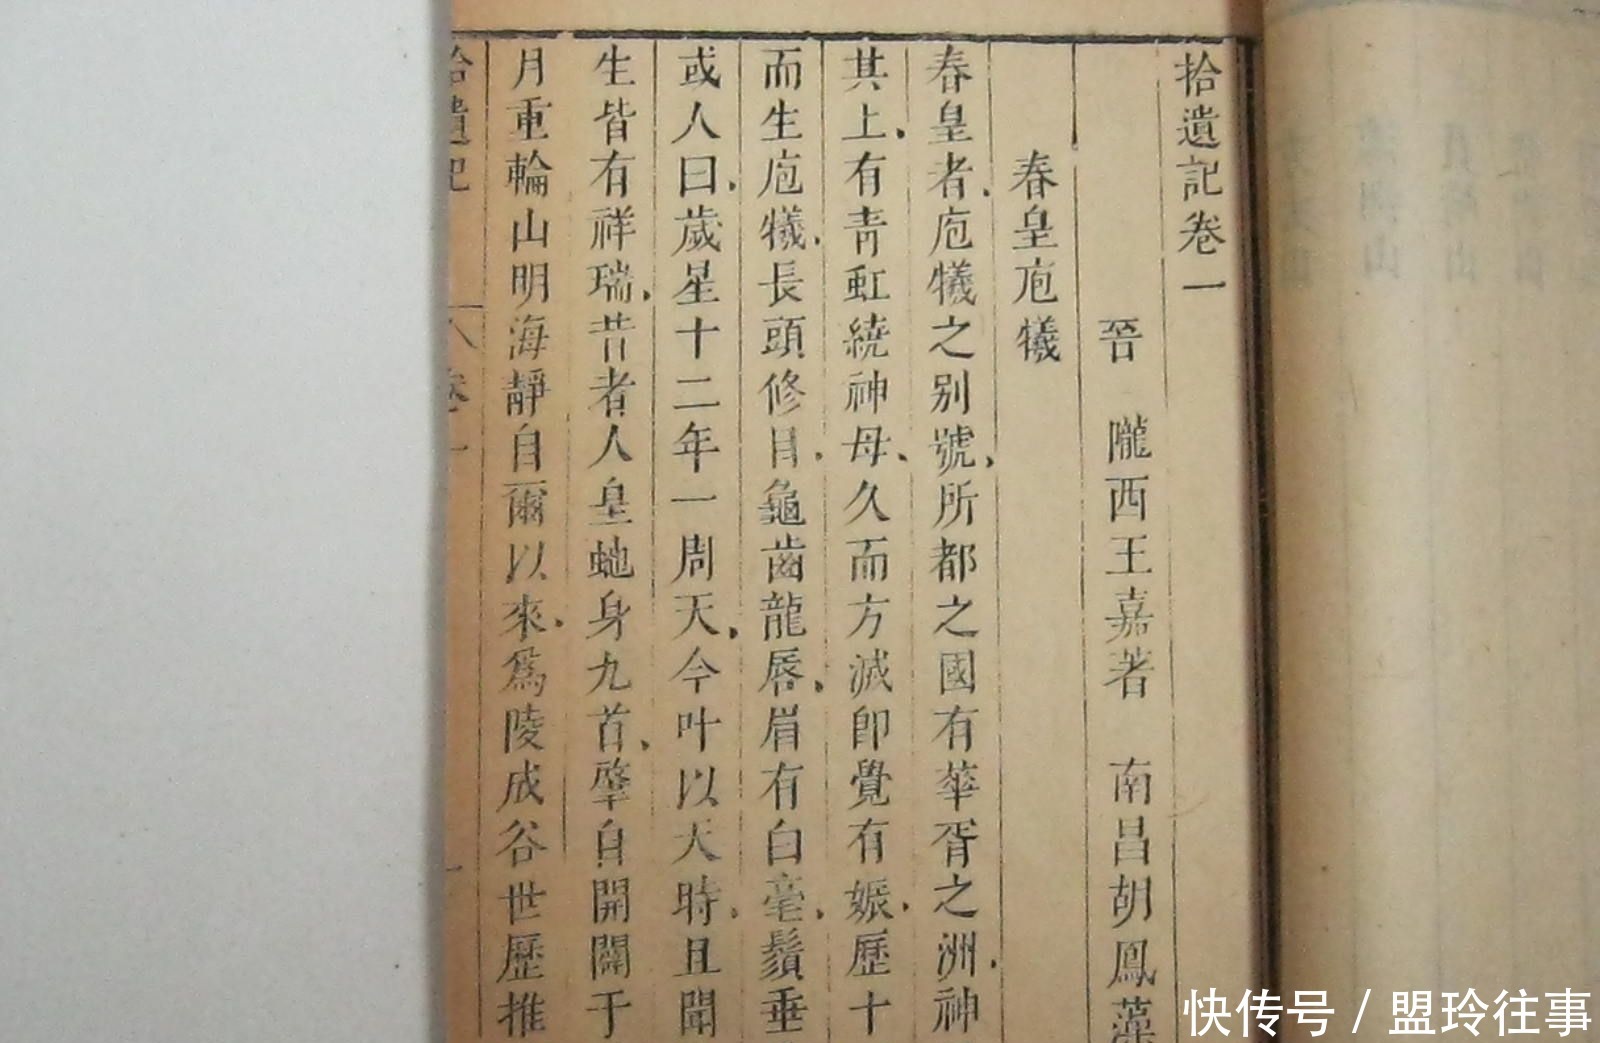 拾遺記卷一
晉 隴西王嘉著 南昌胡鳳藻
春皇庖犧
春皇者庖犧之別號所都之國有華胥之洲神
其上有青虹繞神母久而方滅即覺有娠歷十
而生庖犧長頭修目龜齒龍唇眉有白毫鬚垂
或人曰歲星十二年一周天今叶以天時且聞
生皆有祥瑞昔者人皇蛇身九首肇自開闢于
月重輪山明海靜自爾以來為陵成谷世歷推
拾遺記 卷一
快传号 / 盟玲往事